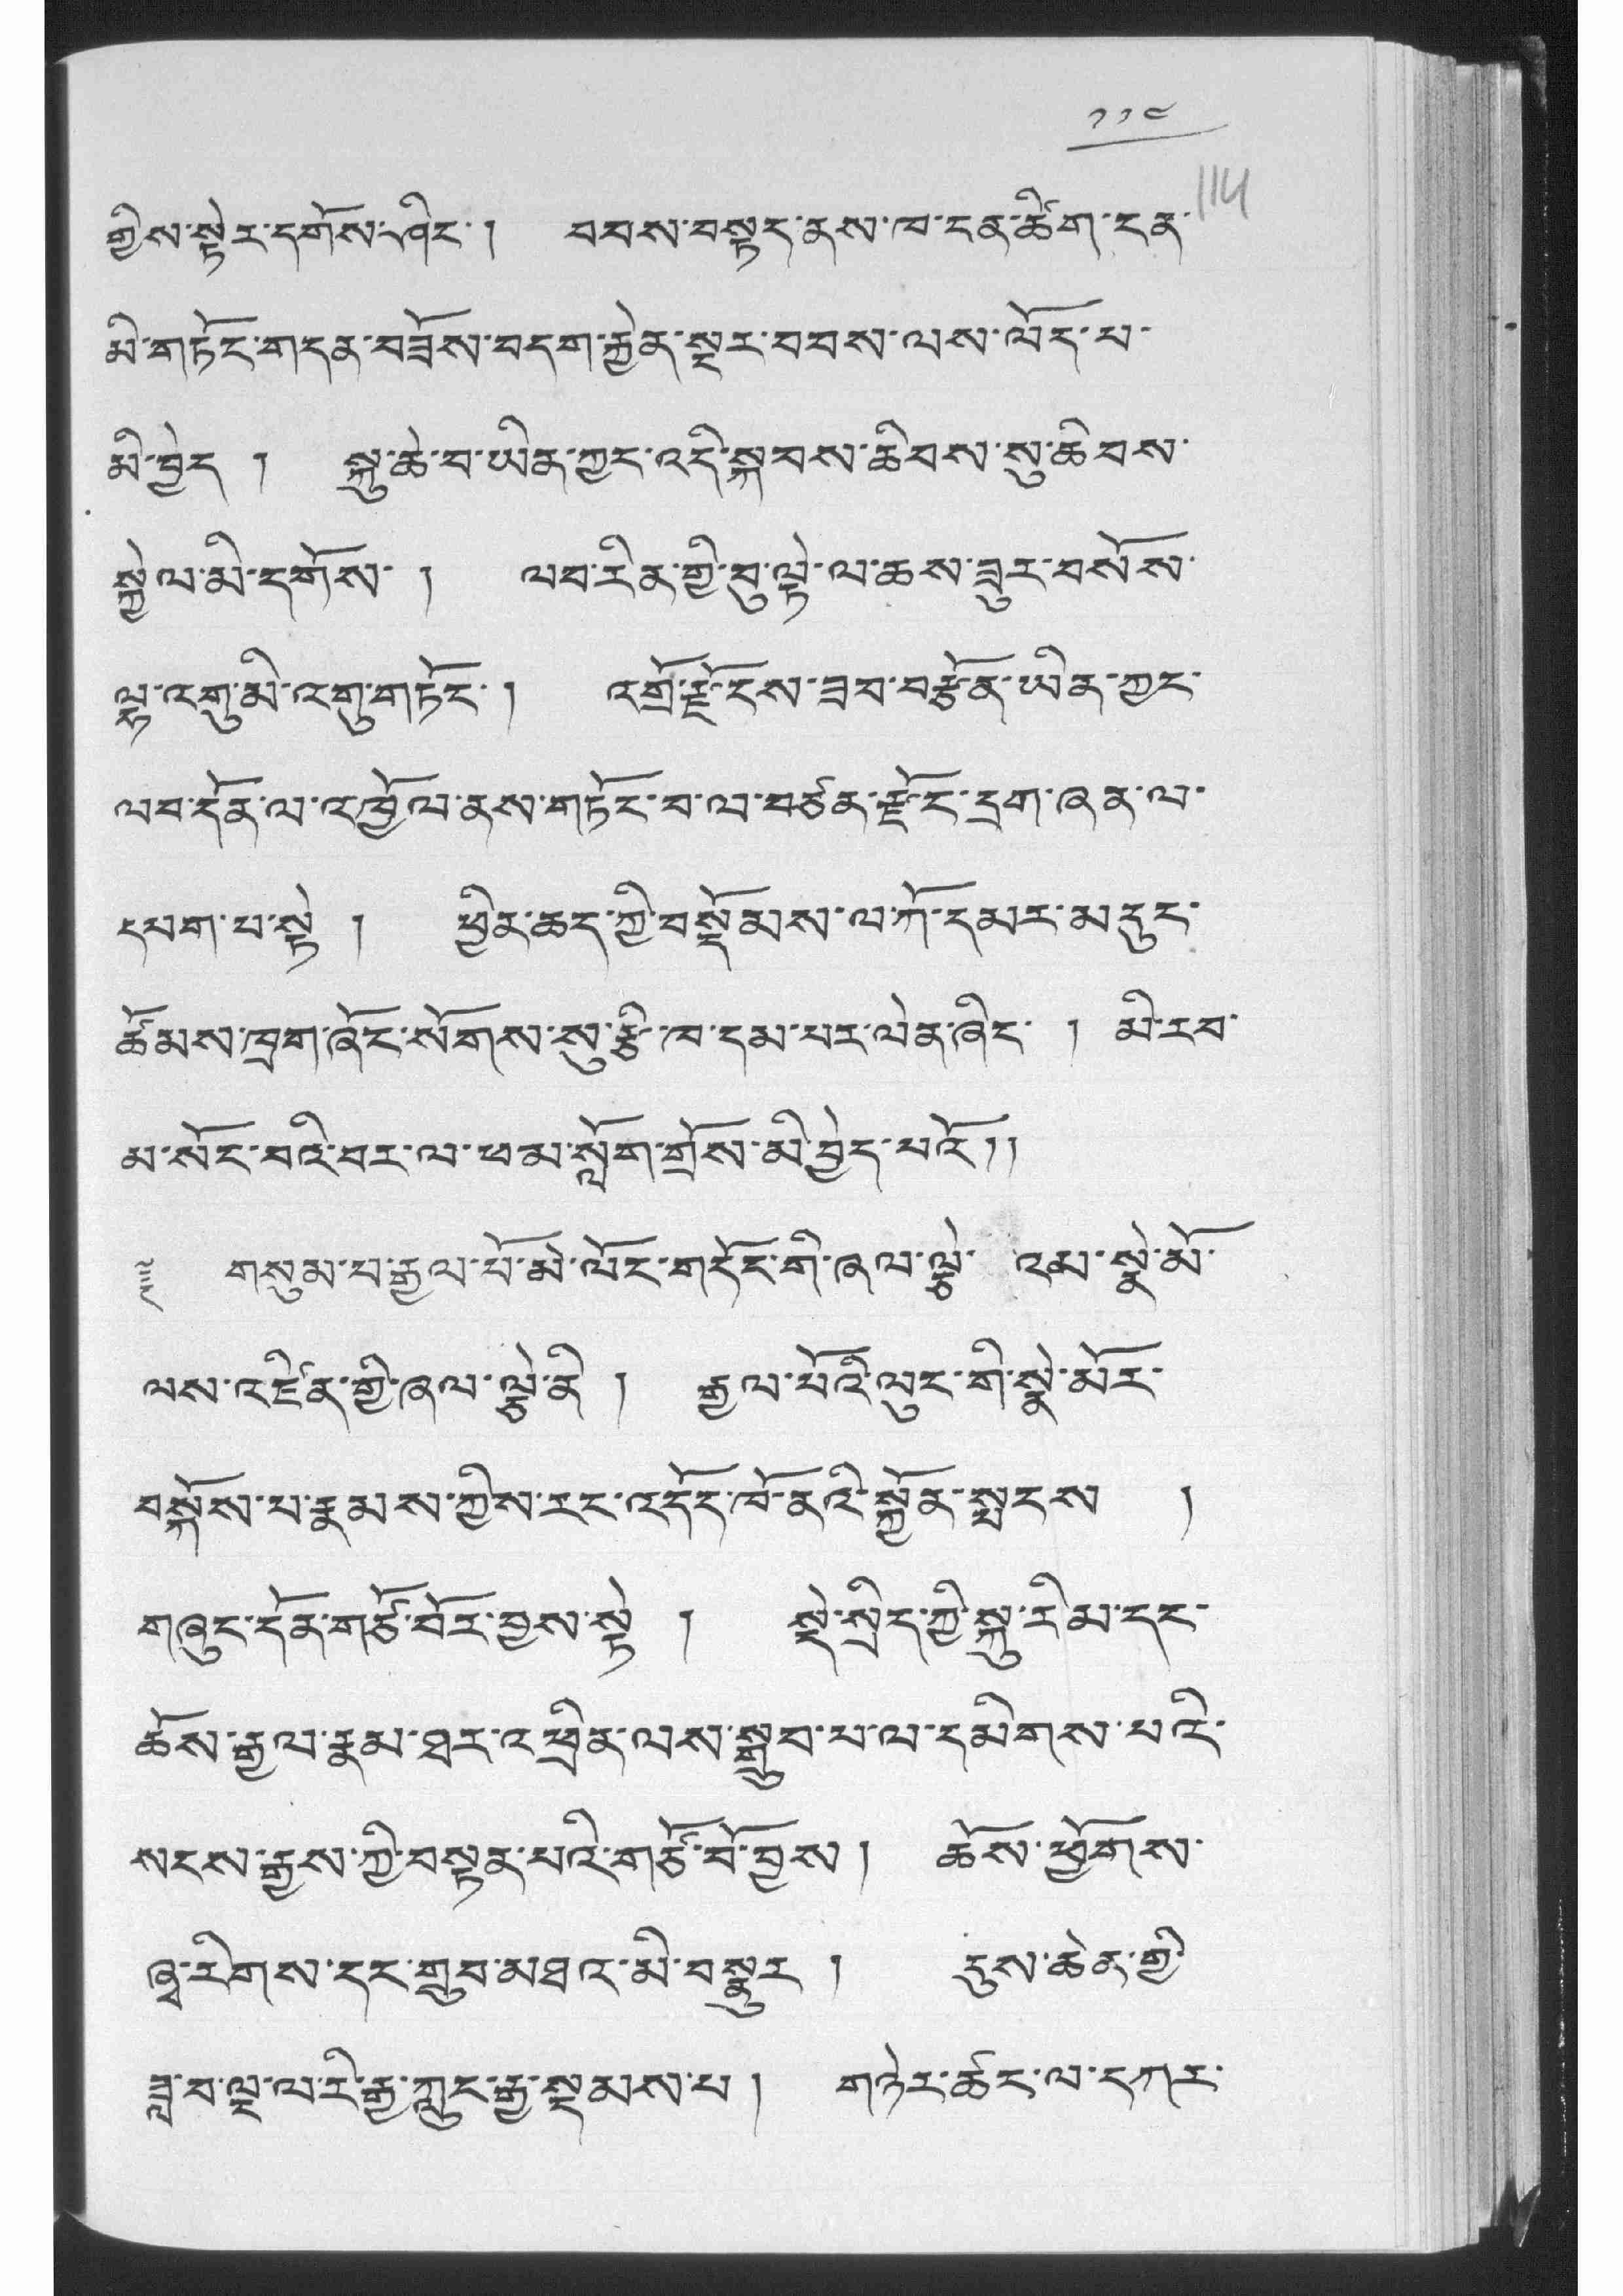 ༡༡༤
114
གྱིས་སྟེར་དགོས་ཞིང་། བབས་བསྟང་ནས་ཁ་དན་ཚིག་ངན་
མི་གཏོང་གདན་བཟོས་བདག་རྐྱེན་སྔར་བབས་ལས་ལོད་པ་
མི་བྱེད ། སྐུ་ཆེ་བ་ཡིན་ཀྱང་འདི་སྐབས་ཆིབས་སུ་ཆིབས་
སྐྱེལ་མི་དགོས་ ། ལབ་རིན་གྱི་བུ་ལྟེ་ལ་ཆས་ཟུར་བསོས་
ལྟ་འགུ་མི་འགུ་གཏོང་། འགྲོ་རྫོངས་ཟབ་བརྩོན་ཡིན་ཀྱང་
ལབ་དོན་ལ་འཁྱོལ་ནས་གཏོང་བ་ལ་བཙན་རྫོང་དྲག་ཞན་ལ་
དཔག་པ་སྟེ ། ཕྱིན་ཆད་ཀྱི་བསྡོམས་ལ་ཀོ་དམར་མདུང་
ཚོམས་ཁྲག་ཞོང་སོགས་སུ་རྩི་ཁ་དམ་པར་ལེན་ཞིང་ ། མི་རབ་
མ་སོང་བའི་བར་ལ་ཕམ་སློག་གྲོས་མི་བྱེད་པའོ།།
༈ གསུམ་པ་རྒྱལ་པོ་མེ་ལོང་གདོང་གི་ཞལ་ལྕེ་ འམ་སྣེ་མོ་
ལས་འཛིན་གྱི་ཞལ་ལྕེ་ནི ། རྒྱལ་པོའི་ལུང་གི་སྣེ་མོར་
བསྐོས་པ་རྣམས་ཀྱིས་རང་འདོད་ཁོ་ནའི་སྐྱོན་སྤངས །
གཞུང་དོན་གཙོ་བོར་བྱས་སྟེ ། སྡེ་སྲིད་ཀྱི་སྐུ་རིམ་དང་
ཆོས་རྒྱལ་རྣམ་ཐར་འཕྲིན་ལས་སྒྲུབ་པ་ལ་དམིགས་པའི་
སངས་རྒྱས་ཀྱི་བསྟན་པའི་གཙོ་བོ་བྱས། ཆོས་ཕྱོགས་
ཞྭ་རིགས་དང་གྲུབ་མཐའ་མི་བསྣུར ། དུས་ཆེན་གྱི
ཟླ་བ་ལྔ་ལ་རི་རྒྱ་ཀླུང་རྒྱ་སྡམས་པ། གཉེར་ཚང་ལ་དཀར་